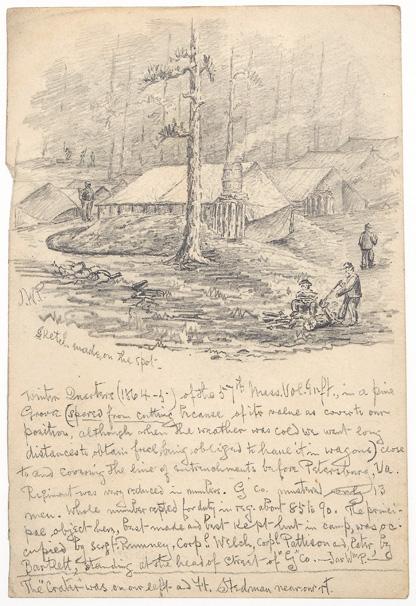 JWR
Sketch made on the spot.
Winter Quarters (1864-5-) of the 57th Mass. Vol. Inft., in a pine
Grove (spared from cutting because of its value as cover to our
position, although when the weather was cold we went long
distances to obtain fuel, being obliged to haul it in wagons) close
to and covering the line of entrenchments before Petersburg, Va.
Regiment was very reduced in numbers. G Co. mustered only 13
men. Whole number reported for duty in reg. about 85 to 90. The princi-
pal object here, best made and best kept hut in camp, was oc-
cupied by Sergt. Pumney, Corpl. Welch, Corpl. Patteson and,
Bartlett, standing at the head of street of "G" Co.
The "Crater" was on our left and Ft. Stedman near our rt.